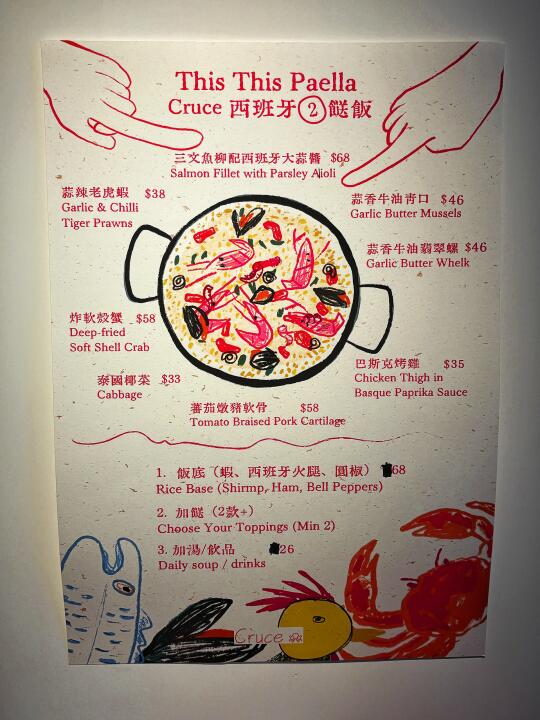 This This Paella
Cruce 西班牙②餸飯
三文魚柳配西班牙大蒜醬 $68
Salmon Fillet with Parsley Aioli
蒜辣老虎蝦 $38
Garlic & Chilli
Tiger Prawns
蒜香牛油青口 $46
Garlic Butter Mussels
蒜香牛油翡翠螺 $46
Garlic Butter Whelk
炸軟殼蟹 $58
Deep-fried
Soft Shell Crab
巴斯克烤雞 $35
Chicken Thigh in
Basque Paprika Sauce
泰國椰菜 $33
Cabbage
蕃茄燉豬軟骨 $58
Tomato Braised Pork Cartilage
1. 飯底（蝦、西班牙火腿、圓椒） 68
Rice Base (Shirmp, Ham, Bell Peppers)
2. 加餸（2款+）
Choose Your Toppings (Min 2)
3. 加湯/飲品 26
Daily soup / drinks
Cruce